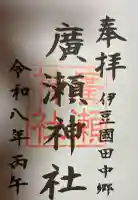 奉拝
伊豆國田中郷
廣瀬神社
令和八年丙午